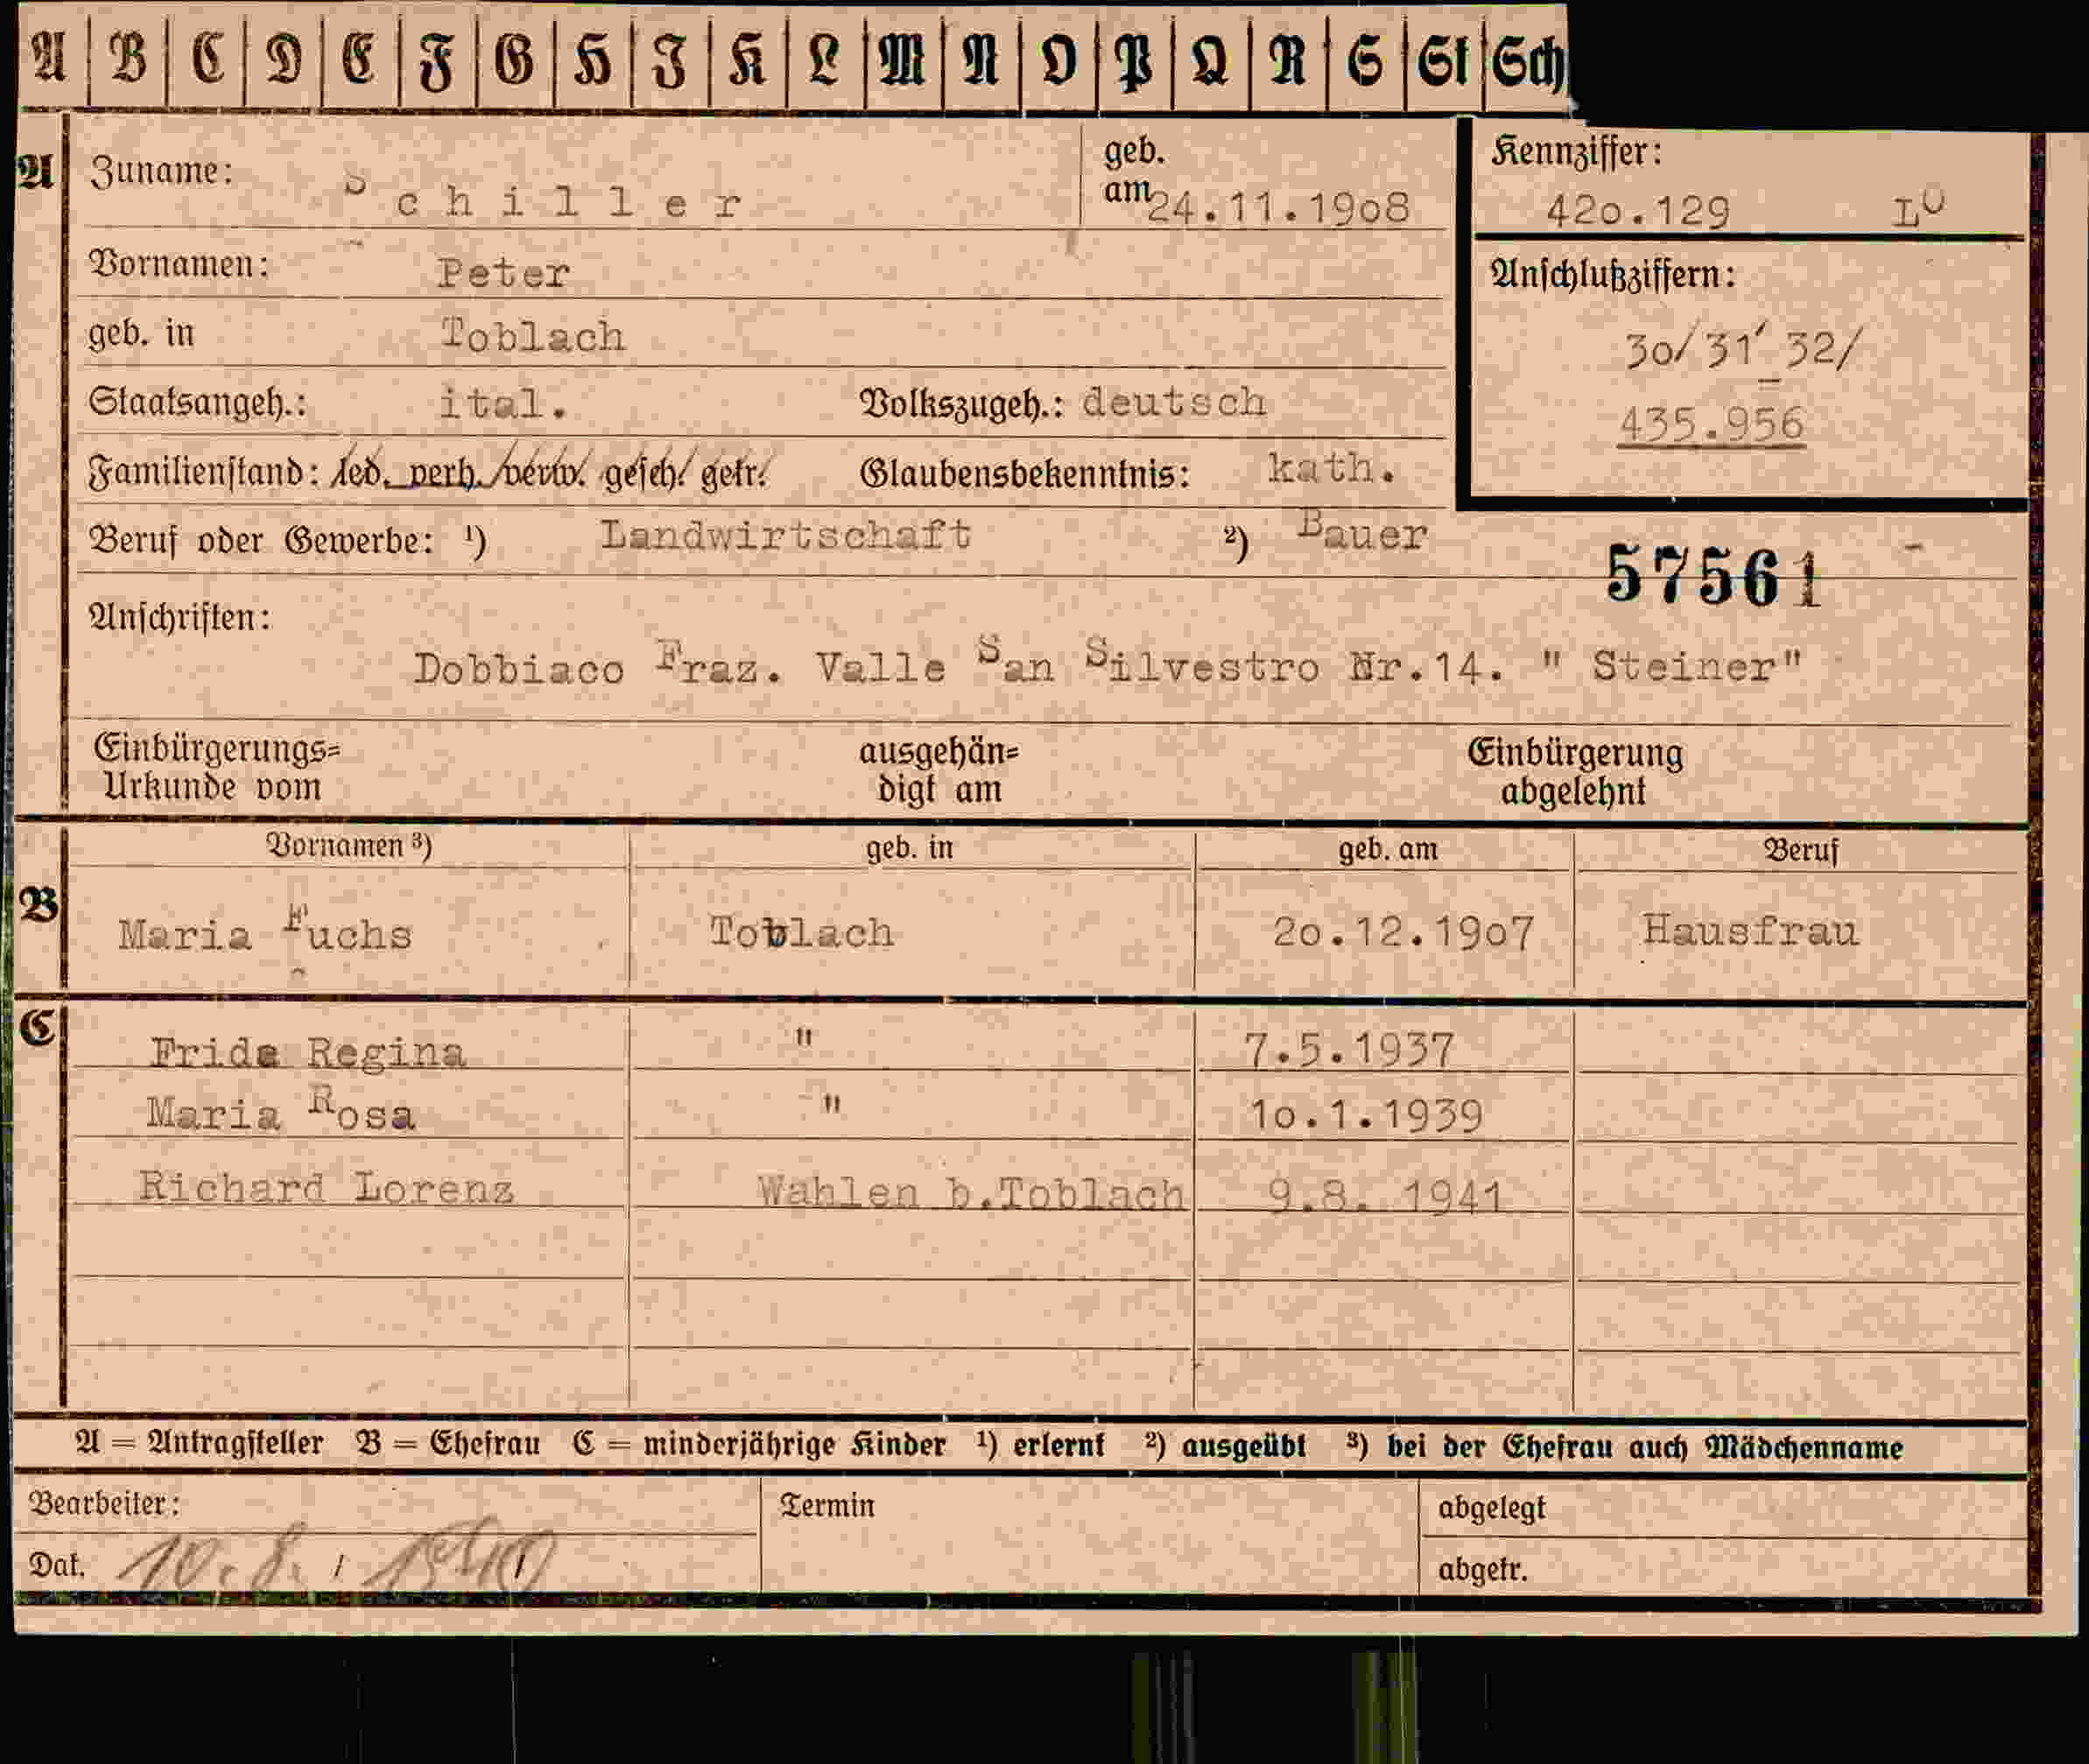 A B C D E F G H I K L M N O P Q R S St Sch
A Zuname: Schiller geb. am 24.11.1908 Kennziffer:
420.129 LO
Vornamen: Peter Anschlußziffern:
geb. in Toblach 30/31/ 32/
Staatsangeh.: ital. Volkszugeh.: deutsch 435.956
Familienstand: led. verh. verw. gesch. getr. Glaubensbekenntnis: kath.
Beruf oder Gewerbe: ¹) Landwirtschaft ²) Bauer
57561
Anschriften:
Dobbiaco Fraz. Valle San Silvestro Nr.14. " Steiner"
Einbürgerungs= ausgehän= Einbürgerung
Urkunde vom digt am abgelehnt
Vornamen ³) geb. in geb. am Beruf
B Maria Fuchs Toblach 20.12.1907 Hausfrau
C Frida Regina " 7.5.1937
Maria Rosa " 10.1.1939
Richard Lorenz Wahlen b.Toblach 9.8. 1941
A = Antragsteller B = Ehefrau C = minderjährige Kinder ¹) erlernt ²) ausgeübt ³) bei der Ehefrau auch Mädchenname
Bearbeiter: Termin abgelegt
Dat. 10.8. abgetr.